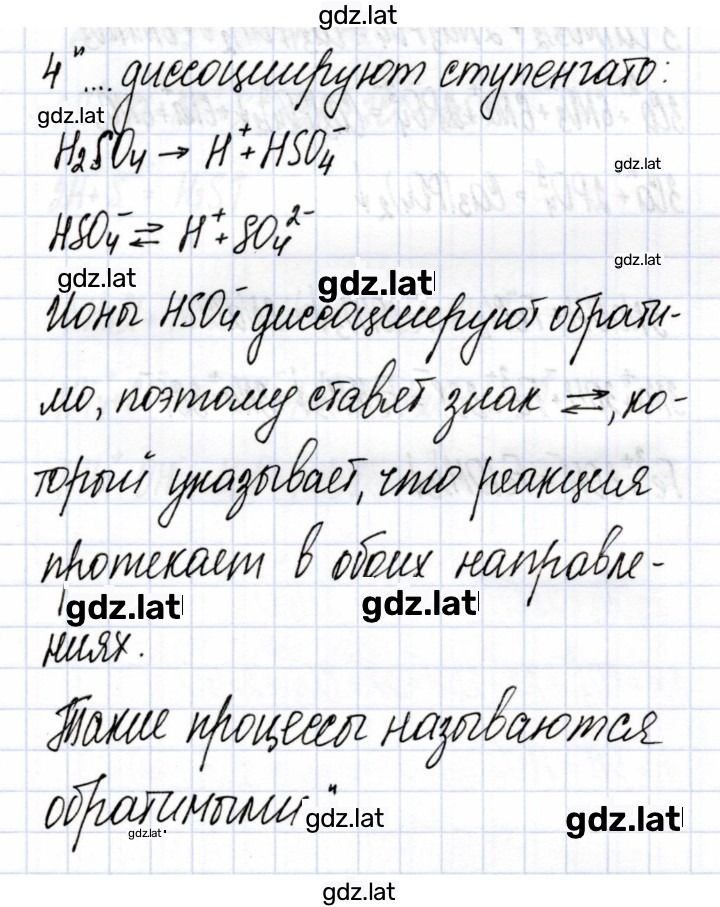 gdz.lat
4 "... диссоциируют ступенчато:
gdz.lat
H₂SO₄ → H⁺ + HSO₄⁻
gdz.lat
HSO₄⁻ ⇄ H⁺ + SO₄²⁻
gdz.lat
gdz.lat gdz.lat
Ионы HSO₄⁻ диссоциируют обрати-
мо, поэтому ставят знак ⇄, ко-
торый указывает, что реакция
протекает в обоих направле-
gdz.lat gdz.lat
ниях.
Такие процессы называются
обратимыми"
gdz.lat gdz.lat gdz.lat
gdz.lat